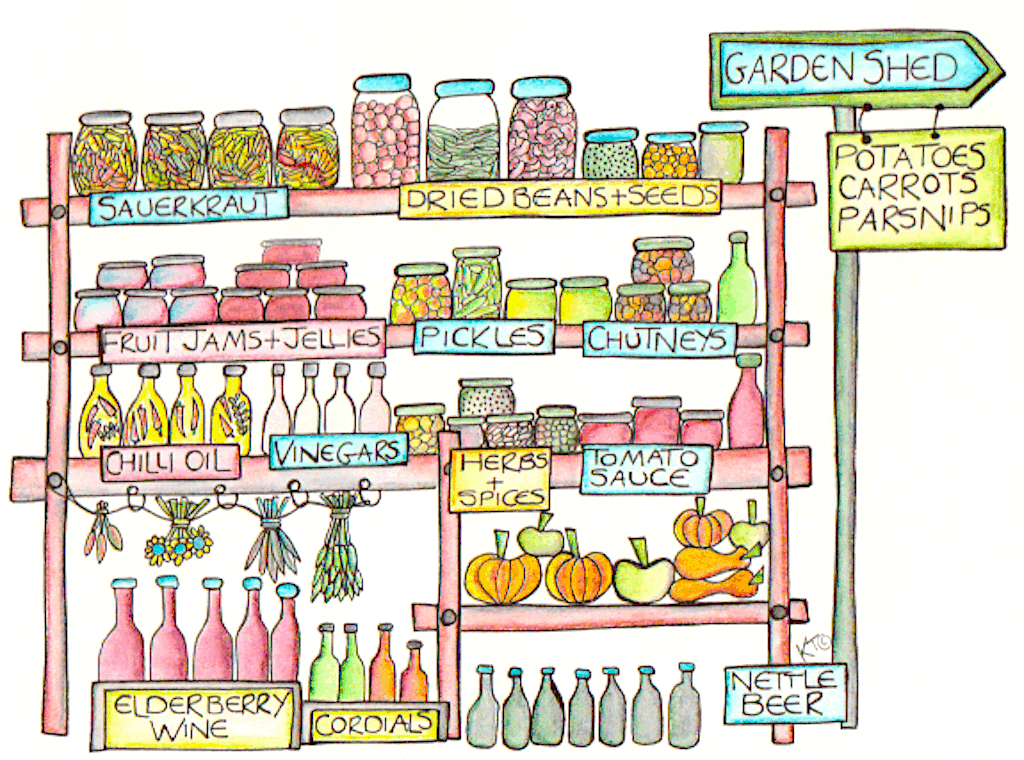 GARDEN SHED
POTATOES
CARROTS
PARSNIPS
SAUERKRAUT
DRIED BEANS+SEEDS
FRUIT JAMS+JELLIES
PICKLES
CHUTNEYS
CHILLI OIL
VINEGARS
HERBS
+
SPICES
TOMATO
SAUCE
ELDERBERRY
WINE
CORDIALS
NETTLE
BEER
KT©